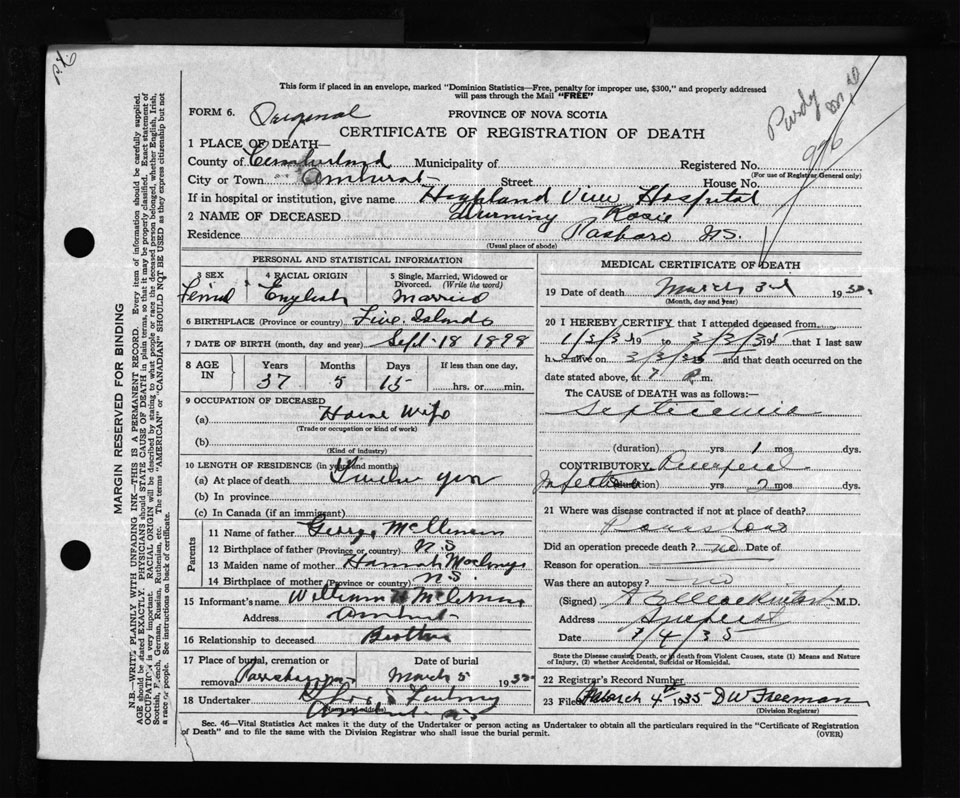 This form if placed in an envelope, marked "Dominion Statistics—Free, penalty for improper use, $300," and properly addressed
will pass through the Mail "FREE"
Purdy
976
FORM 6. Original PROVINCE OF NOVA SCOTIA
CERTIFICATE OF REGISTRATION OF DEATH
1 PLACE OF DEATH—
County of Cumberland Municipality of Registered No.
(For use of Registrar General only)
City or Town Amherst Street House No.
If in hospital or institution, give name Highland View Hospital
2 NAME OF DECEASED Rosie
Residence N.S.
(Usual place of abode)
PERSONAL AND STATISTICAL INFORMATION
3 SEX 4 RACIAL ORIGIN 5 Single, Married, Widowed or Divorced. (Write the word)
English Married
6 BIRTHPLACE (Province or country) Five Islands
7 DATE OF BIRTH (month, day and year) Sept 18 1898
8 AGE IN Years Months Days If less than one day,
37 5 15 hrs. or min.
9 OCCUPATION OF DECEASED
(a) House Wife
(Trade or occupation or kind of work)
(b)
(Kind of industry)
10 LENGTH OF RESIDENCE (in years and months)
(a) At place of death Twelve yrs
(b) In province
(c) In Canada (if an immigrant)
Parents
11 Name of father George
12 Birthplace of father (Province or country) N.S
13 Maiden name of mother Hannah
14 Birthplace of mother (Province or country) N.S.
15 Informant's name William H
Address Amherst
16 Relationship to deceased Brother
17 Place of burial, cremation or removal Date of burial
March 5 193
18 Undertaker
MEDICAL CERTIFICATE OF DEATH
19 Date of death March 3rd 193
(Month, day and year)
20 I HEREBY CERTIFY that I attended deceased from
1/3/3 19 to 3/3/3 19 that I last saw
h alive on 3/3/3 and that death occurred on the
date stated above, at 7 P.m.
The CAUSE of DEATH was as follows:—
Septicemia
(duration) yrs 1 mos dys.
CONTRIBUTORY Puerperal
Infection (duration) yrs 2 mos dys.
21 Where was disease contracted if not at place of death?
Did an operation precede death? no Date of
Reason for operation
Was there an autopsy? no
(Signed) M.D.
Address
Date /4/35
State the Disease causing Death, or in death from Violent Causes, state (1) Means and Nature
of Injury, (2) whether Accidental, Suicidal or Homicidal.
22 Registrar's Record Number
23 Filed March 4th 1935 D W Freeman
(Division Registrar)
Sec. 46—Vital Statistics Act makes it the duty of the Undertaker or person acting as Undertaker to obtain all the particulars required in the "Certificate of Registration
of Death" and to file the same with the Division Registrar who shall issue the burial permit. (OVER)
MARGIN RESERVED FOR BINDING
N.B.—WRITE PLAINLY WITH UNFADING INK—THIS IS A PERMANENT RECORD. Every item of information should be carefully supplied.
AGE should be stated EXACTLY. PHYSICIANS should STATE CAUSE OF DEATH in plain terms, so that it may be properly classified. Exact statement of
OCCUPATION is very important. RACIAL ORIGIN will be described by stating to what people or race the deceased person belonged, whether English, Irish,
Scottish, French, German, Russian, Ruthenian, etc. The terms "AMERICAN" or "CANADIAN" SHOULD NOT BE USED as they express citizenship but not
a race or people. See instructions on back of certificate.